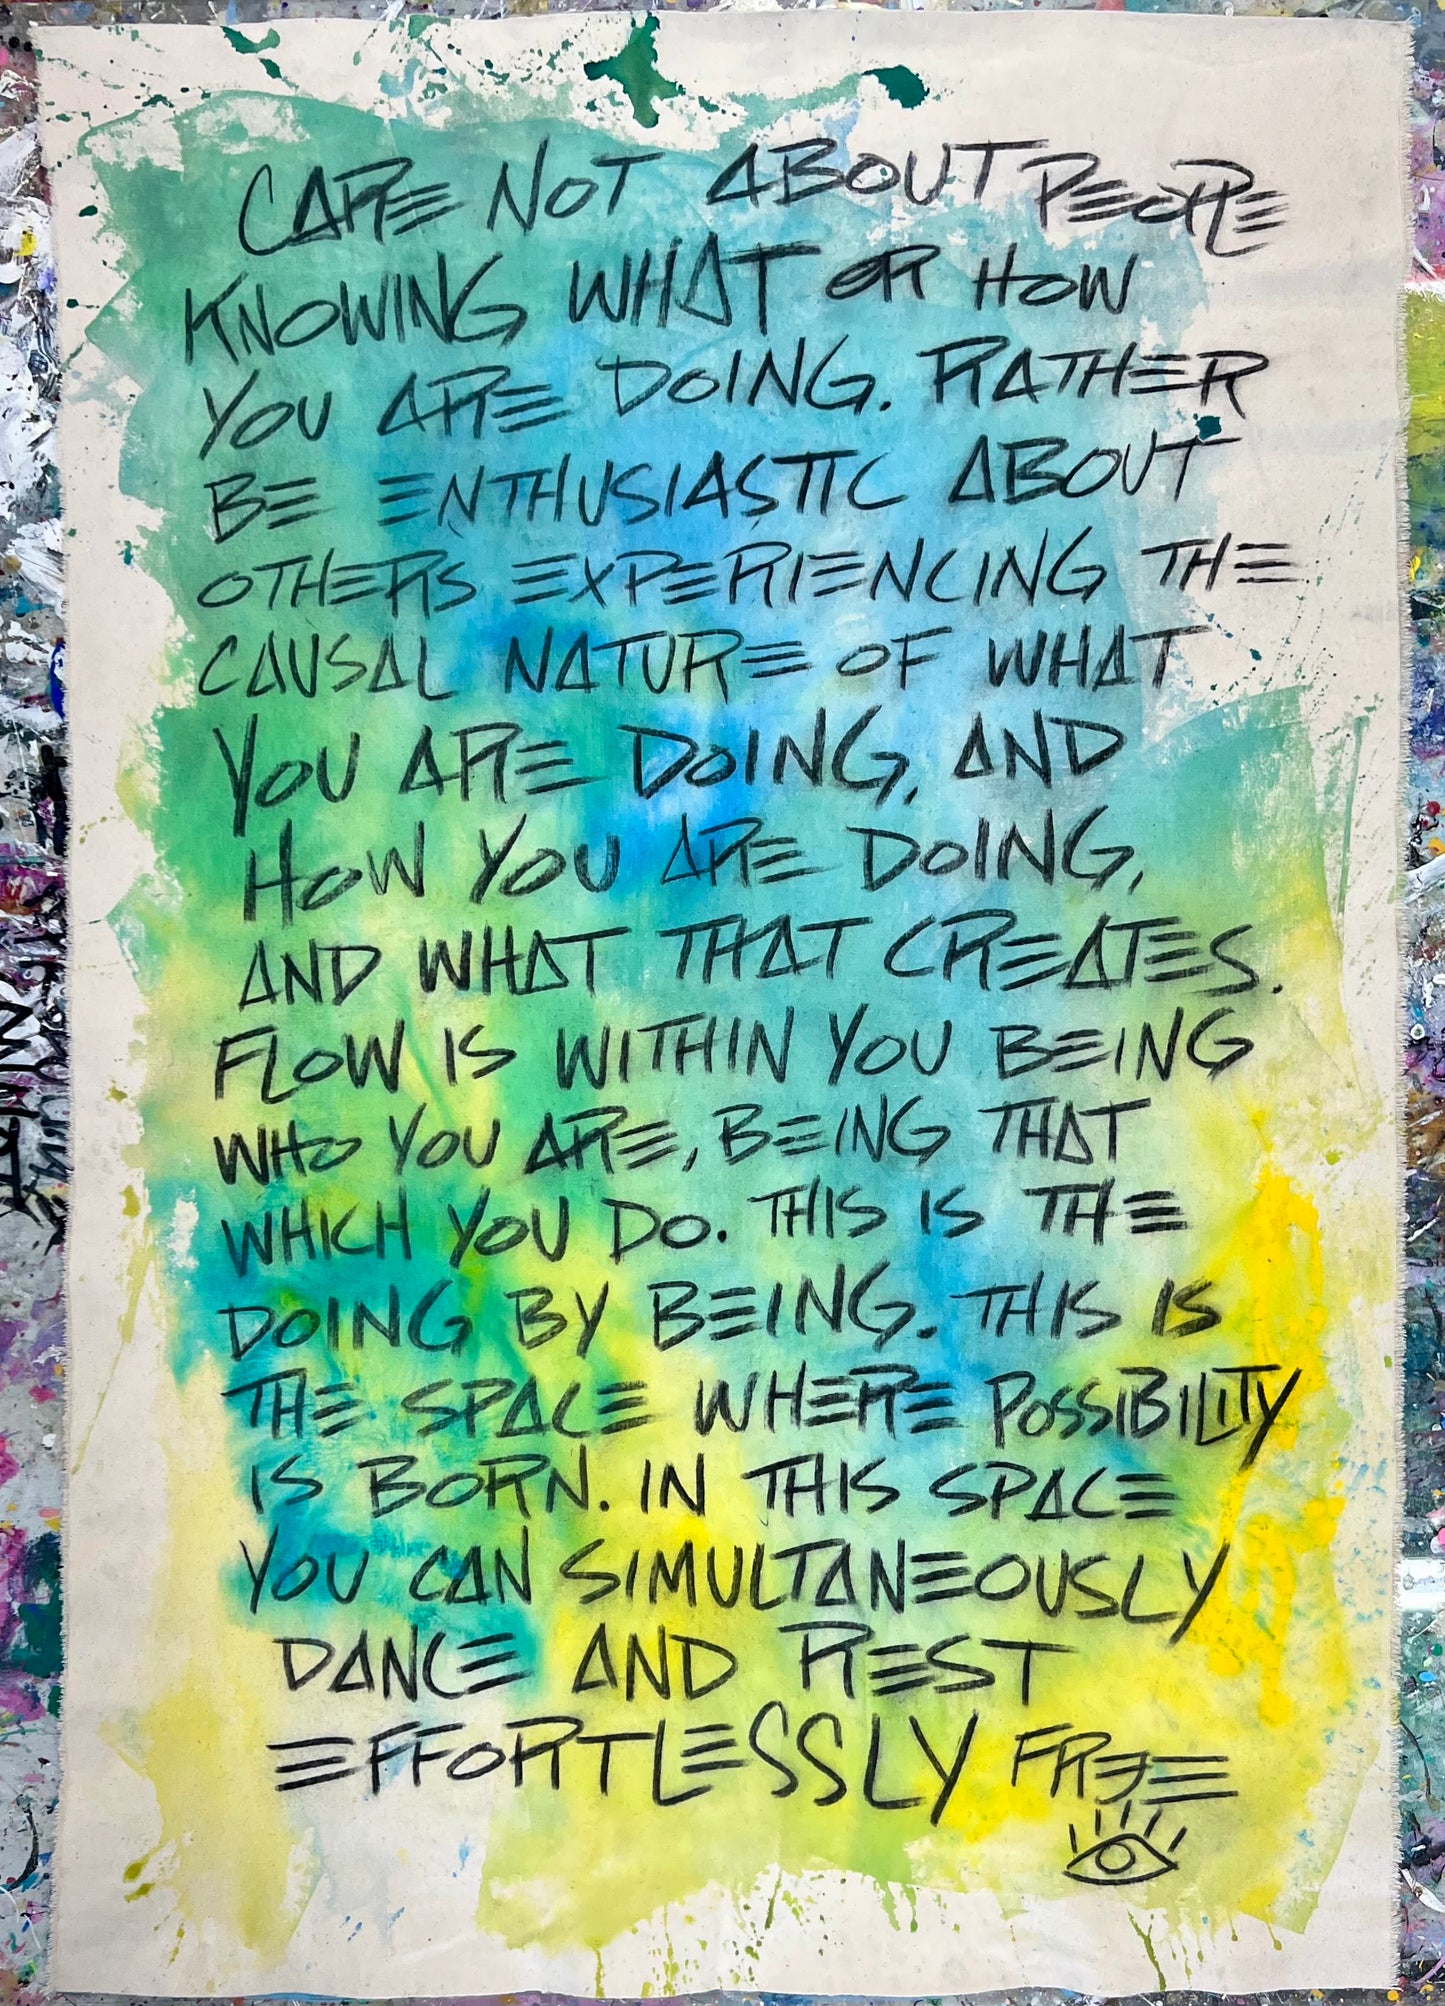 CARE NOT ABOUT PEOPLE
KNOWING WHAT OR HOW
YOU ARE DOING. RATHER
BE ENTHUSIASTIC ABOUT
OTHERS EXPERIENCING THE
CAUSAL NATURE OF WHAT
YOU ARE DOING, AND
HOW YOU ARE DOING,
AND WHAT THAT CREATES.
FLOW IS WITHIN YOU BEING
WHO YOU ARE, BEING THAT
WHICH YOU DO. THIS IS THE
DOING BY BEING. THIS IS
THE SPACE WHERE POSSIBILITY
IS BORN. IN THIS SPACE
YOU CAN SIMULTANEOUSLY
DANCE AND REST
EFFORTLESSLY FREE